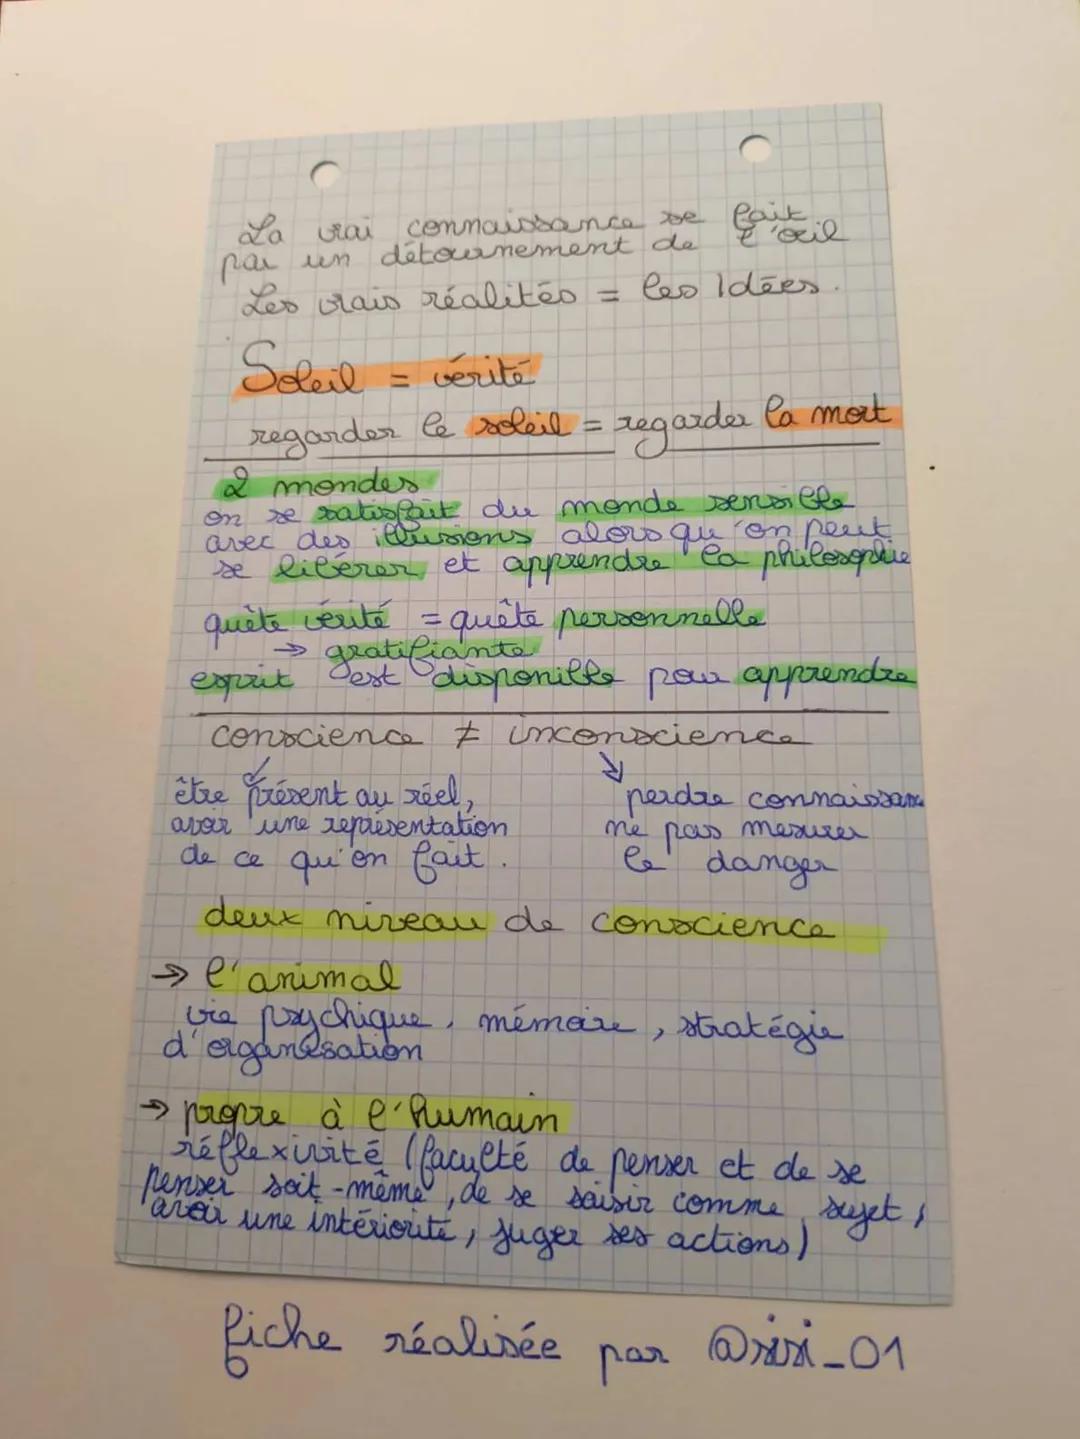 La vrai connaissance se fait
par un détournement de l'œil
Les vrais réalités = les Idées.
Soleil = vérité
regarder le soleil = regarder la mort
2 mondes
on se satisfait du monde sensible
avec des illusions alors qu'on peut
se libérer et apprendre la philosophie
quète vérité = quête personnelle
→ gratifiante
esprit est disponible pour apprendre
conscience ≠ inconscience
être présent au réel,
avoir une représentation
de ce qu'on fait.
perdre connaissance
ne pas mesurer
le danger
deux niveau de conscience
→ l'animal
vie psychique, mémoire, stratégie
d'organisation
→ propre à l'humain
réflexivité (faculté de penser et de se
penser soit-même, de se saisir comme sujet,
avoir une intériorité, juger ses actions)
fiche réalisée par @sisi_01